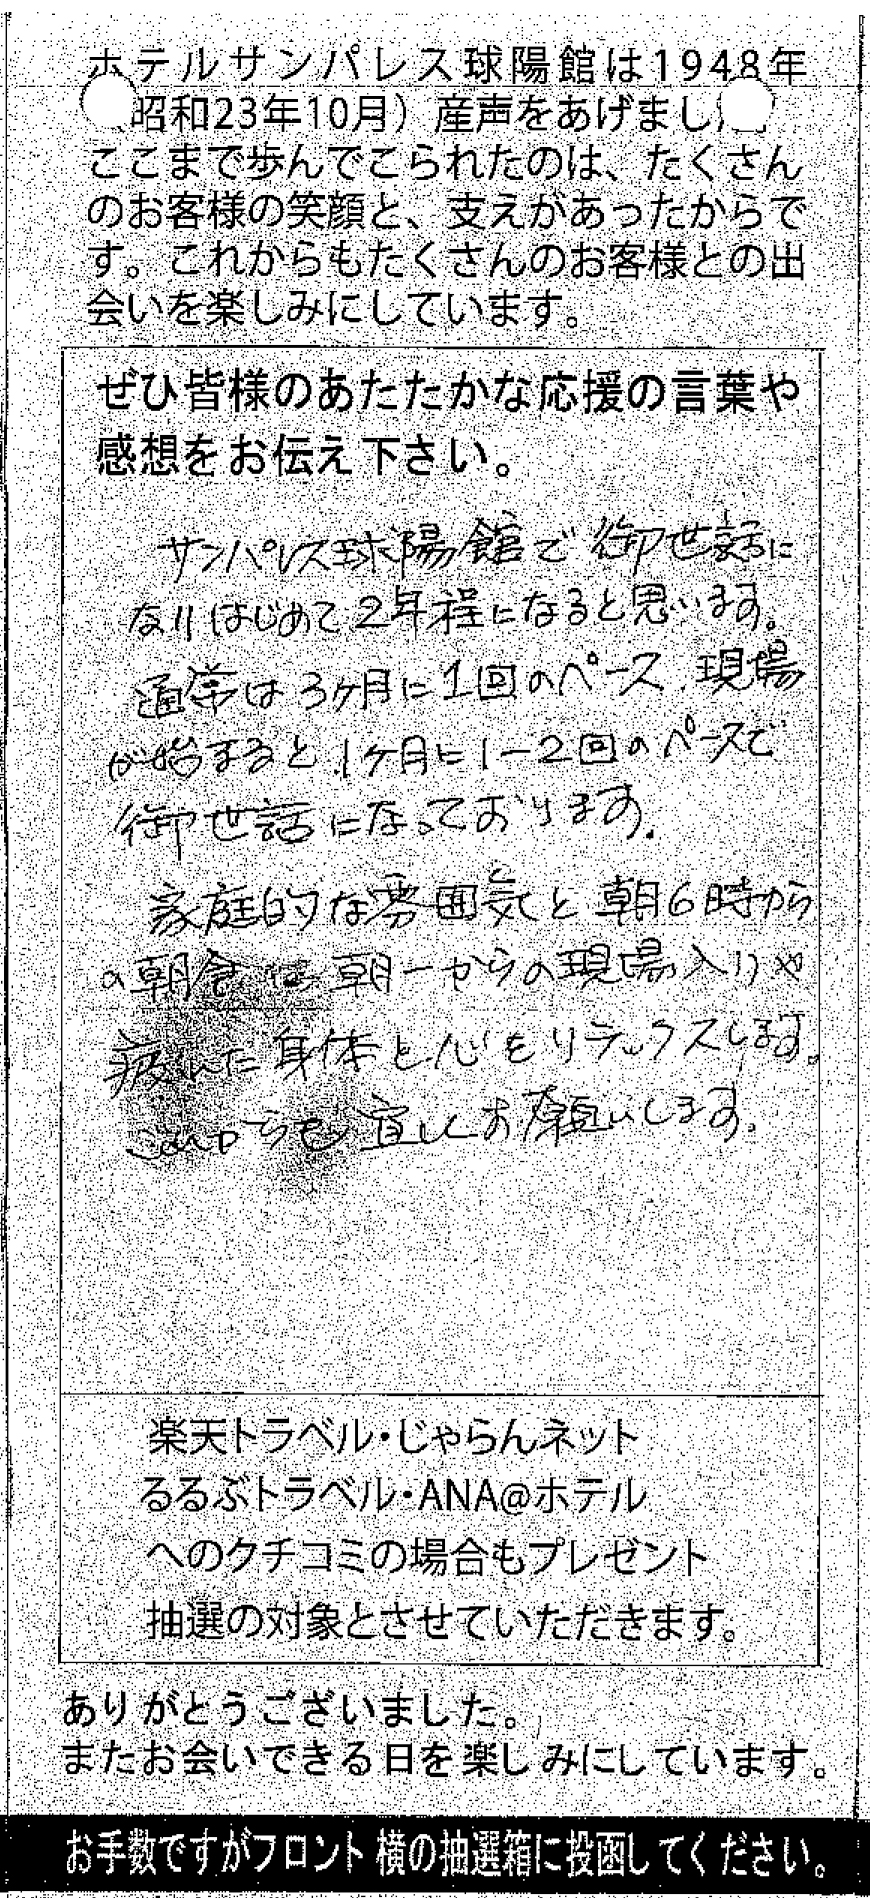 ホテルサンパレス球陽館は1948年
（昭和23年10月）産声をあげました。
ここまで歩んでこられたのは、たくさん
のお客様の笑顔と、支えがあったからで
す。これからもたくさんのお客様との出
会いを楽しみにしています。
ぜひ皆様のあたたかな応援の言葉や
感想をお伝え下さい。
サンパレス球陽館で御世話に
なりはじめて2年程になると思います。
通常は3ヶ月に1回のペース、現場
が始まると、1ヶ月に1-2回のペースで
御世話になっております。
家庭的な雰囲気と朝6時から
の朝食は朝一からの現場入りや
疲れた身体と心をリラックスします。
これからも宜しくお願いします。
楽天トラベル・じゃらんネット
るるぶトラベル・ANA@ホテル
へのクチコミの場合もプレゼント
抽選の対象とさせていただきます。
ありがとうございました。
またお会いできる日を楽しみにしています。
お手数ですがフロント横の抽選箱に投函してください。